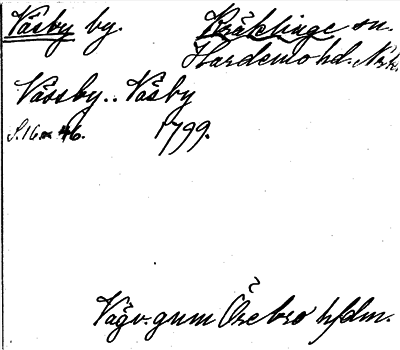 Väsby by. Kräklinge sn.
Hardemo hd. Nrk.
Vässby.. Väsby
S. 16 o 46. 1799.
Vägv. gnm Örebro h/dm.